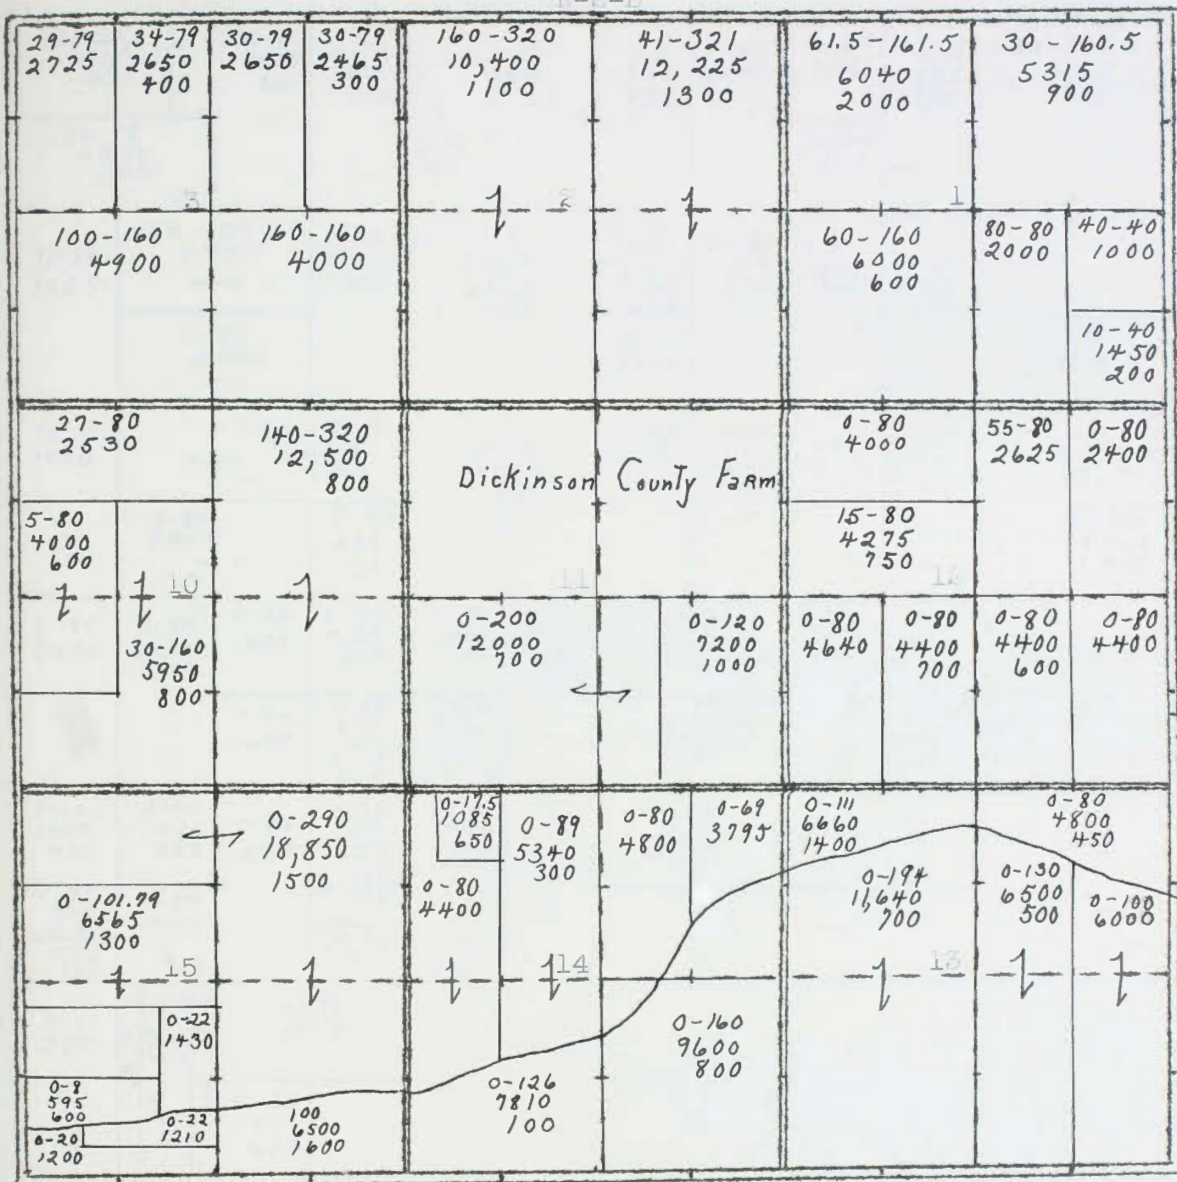 29-79
2725
34-79
2650
400
30-79
2650
30-79
2465
300
160-320
10,400
1100
41-321
12,225
1300
61.5-161.5
6040
2000
30-160.5
5315
900
3
2
1
100-160
4900
160-160
4000
60-160
6000
600
80-80
2000
40-40
1000
10-40
1450
200
27-80
2530
140-320
12,500
800
Dickinson County Farm
0-80
4000
55-80
2625
0-80
2400
5-80
4000
600
15-80
4275
750
10
11
12
30-160
5950
800
0-200
12000
700
0-120
7200
1000
0-80
4640
0-80
4400
700
0-80
4400
600
0-80
4400
0-290
18,850
1500
0-17.5
1085
650
0-89
5340
300
0-80
4800
0-69
3795
0-111
6660
1400
0-80
4800
450
0-101.79
6565
1300
0-80
4400
0-194
11,640
700
0-130
6500
500
0-100
6000
15
14
13
0-22
1430
0-160
9600
800
0-8
595
600
0-22
1210
0-20
1200
100
6500
1600
0-126
7810
100